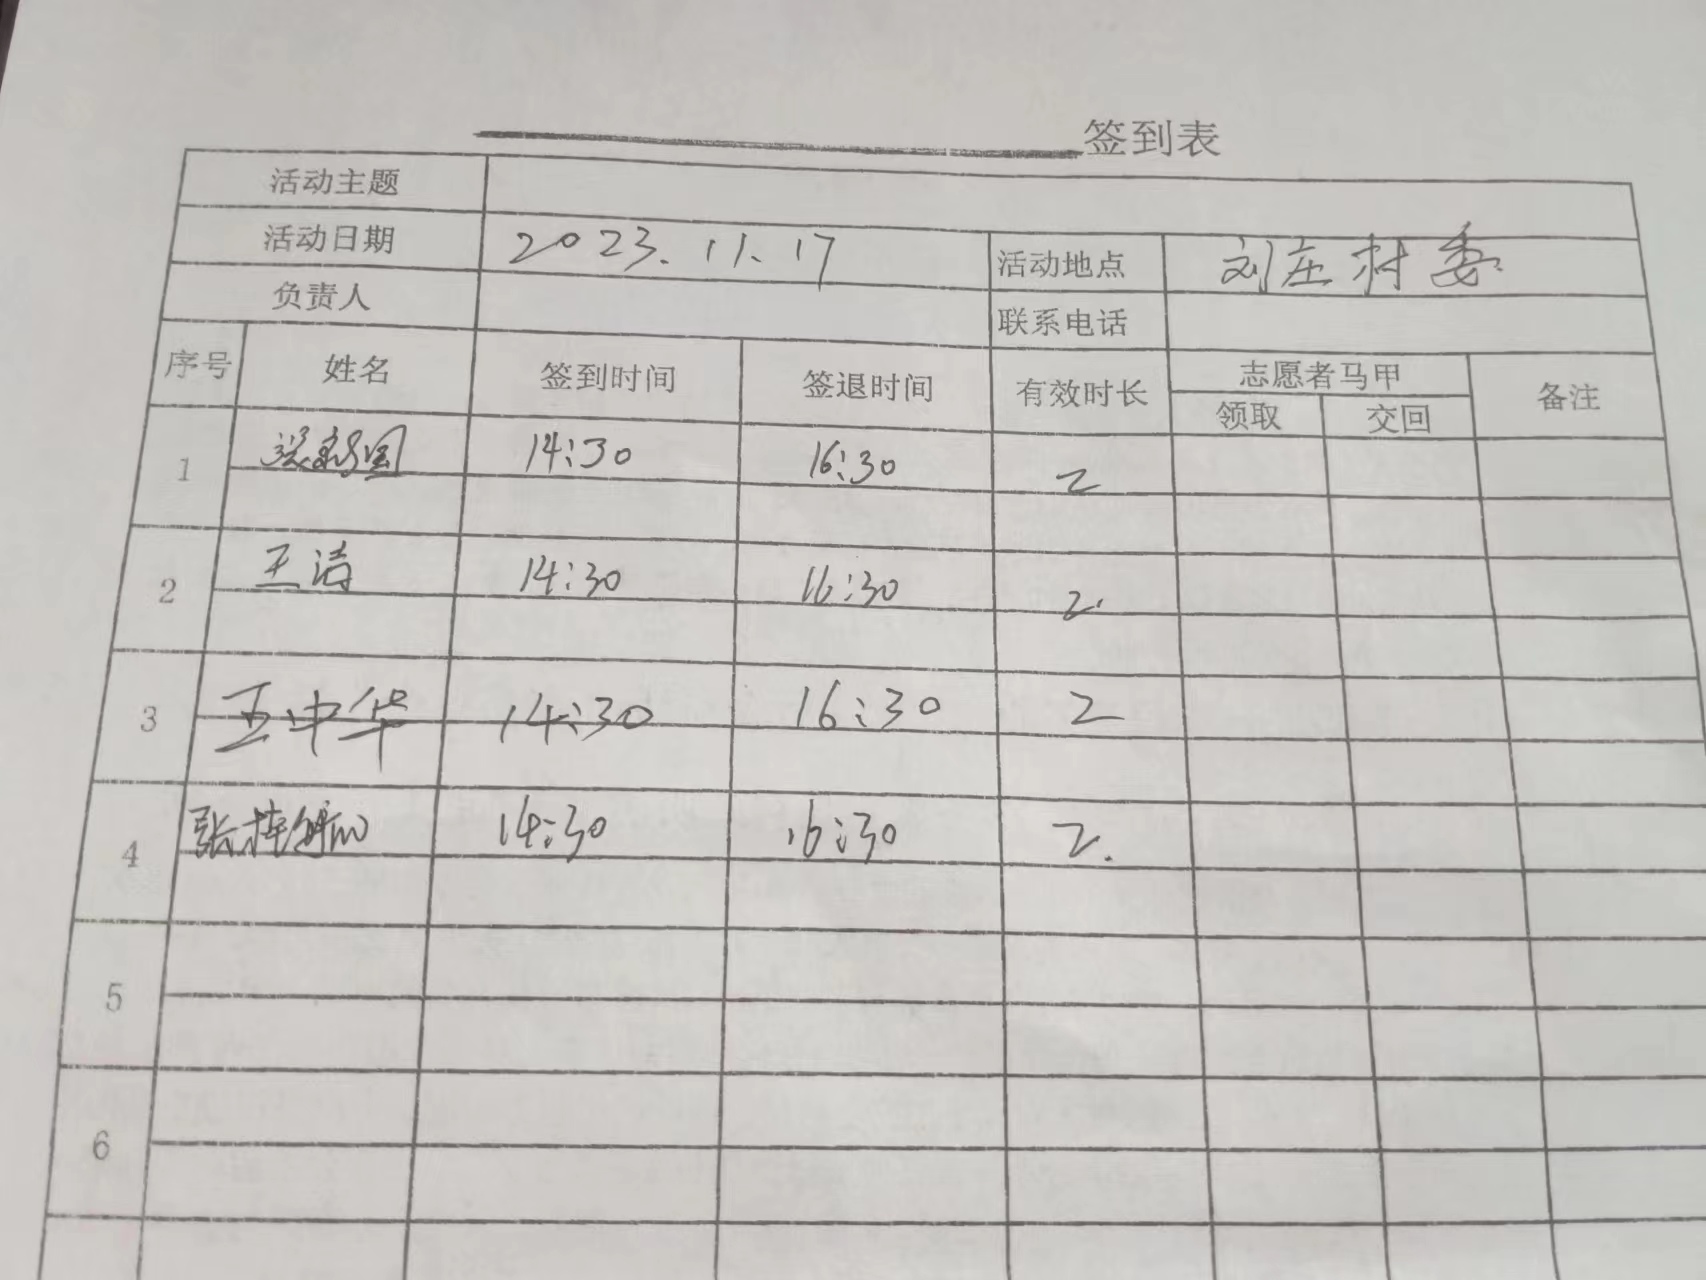 签到表
活动主题
活动日期 2023.11.17 活动地点 刘庄村委
负责人 联系电话
序号 姓名 签到时间 签退时间 有效时长 志愿者马甲 备注
领取 交回
1 14:30 16:30 2
2 王洁 14:30 16:30 2.
3 王中华 14:30 16:30 2
4 14:30 16:30 2.
5
6